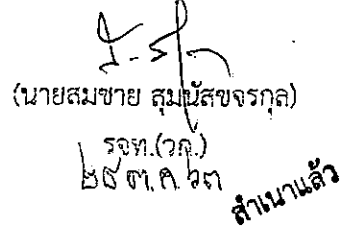 (นายสมชาย สุมนัสขจรกุล)
รจท.(วก.)
๒๘ ต.ค. ๖๓
สำเนาแล้ว